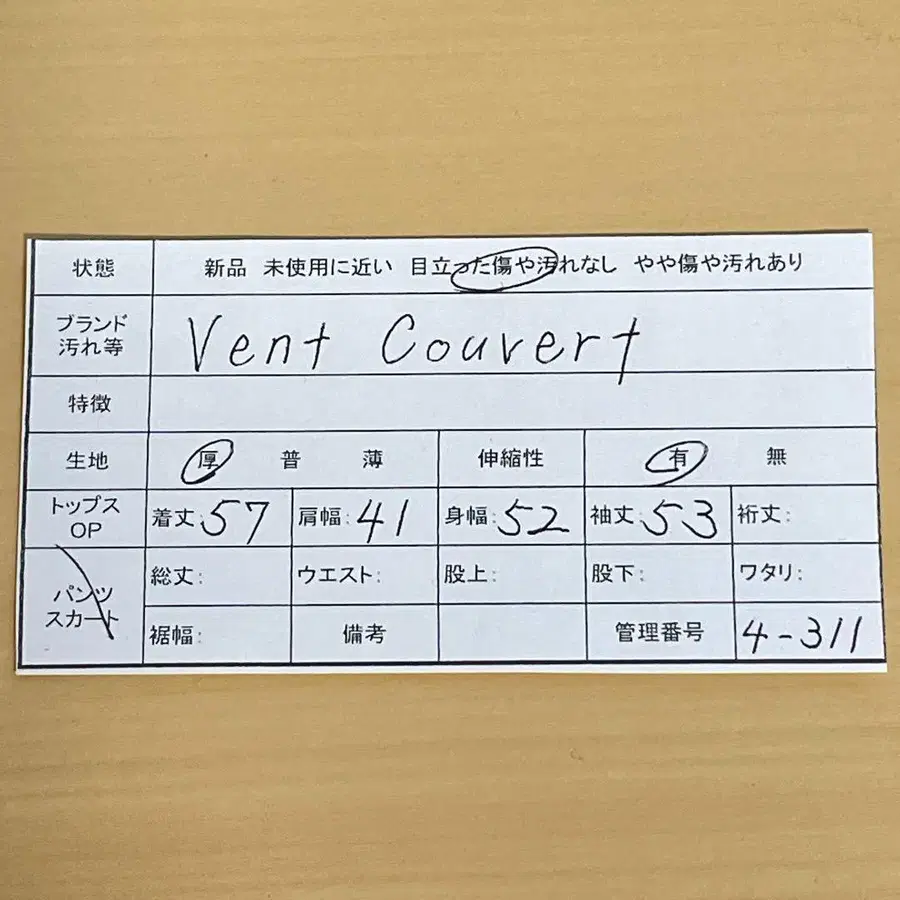 状態 新品 未使用に近い 目立った傷や汚れなし やや傷や汚れあり
ブランド
汚れ等 Vent Couvert
特徴
生地 厚 普 薄 伸縮性 有 無
トップス
OP 着丈:57 肩幅:41 身幅:52 袖丈:53 裄丈:
パンツ
スカート 総丈: ウエスト: 股上: 股下: ワタリ:
裾幅: 備考 管理番号 4-311